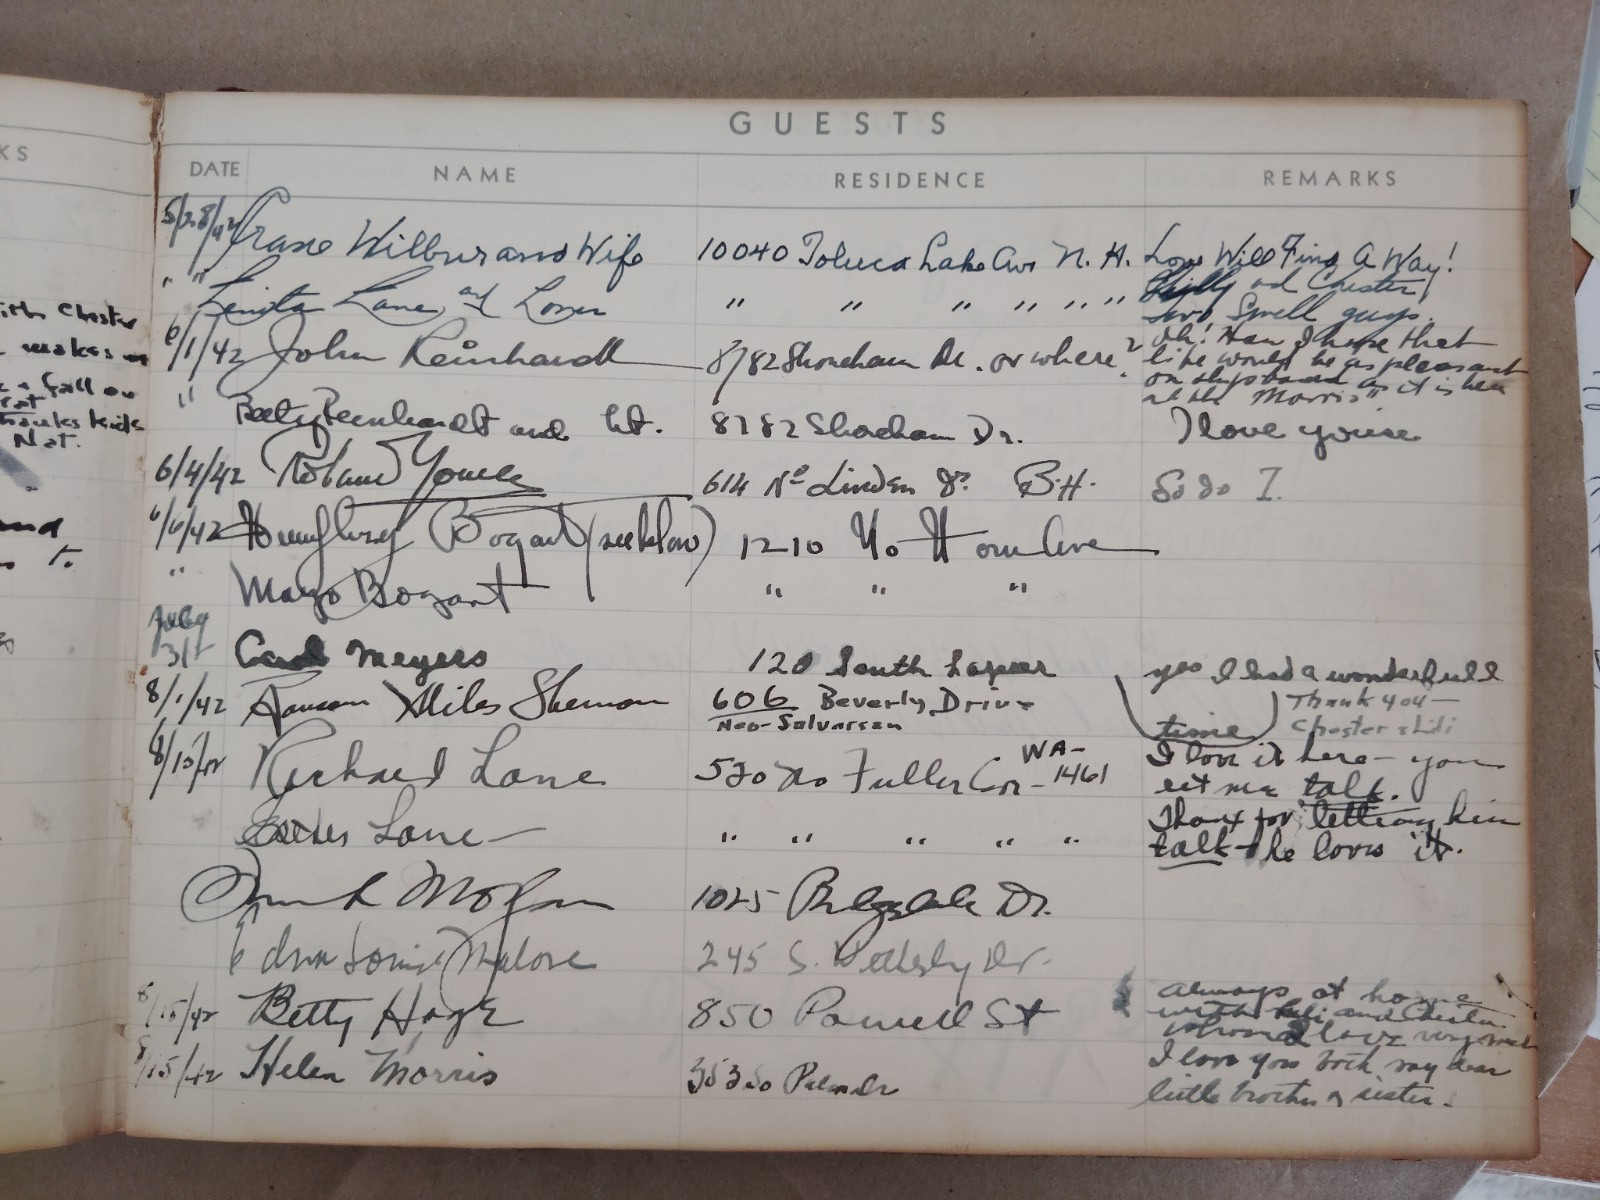 KS
with Chester
makes
fall
thanks kids
Nat.
and
GUESTS
DATE NAME RESIDENCE REMARKS
5/28/42 Crane Wilbur and Wife 10040 Toluca Lake Ave N. H. Love Will Find A Way!
" " Lenita Lane and Lover " " " " " " and Chester
two swell guys.
6/1/42 John Reinhardt 8782 Shoreham Dr. or where? oh! How I hope that
life would be as pleasant
on shipboard as it is here
at the "Morris"
" Betty Reinhardt and Lt. 8782 Shoreham Dr. I love youse
6/4/42 Roland Young 614 No Linden Dr. B.H. So do I.
6/6/42 Humphrey Bogart (see below) 1210 No Horn Ave
" Mayo Bogart " " "
July
31st Carl Meyers 120 South Lapeer yes I had a wonderfull
time
8/1/42 Ransom Miles Sherman 606 Beverly Drive Thank you—
Neo-Salvarsan Chester & Lili
8/15/42 Richard Lane 520 No Fuller WA-1461 I love it here — you
let me talk.
Lane " " " " " Thanx for letting him
talk - he loves it.
Frank Morgan 1025 Ridgedale Dr.
Edna Louise Malone 245 S. Wetherly Dr.
8/15/42 Betty Hage 850 Powell St always at home
with Lili and Chester
love very much
8/15/42 Helen Morris Palm Dr I love you both my dear
little brother & sister.